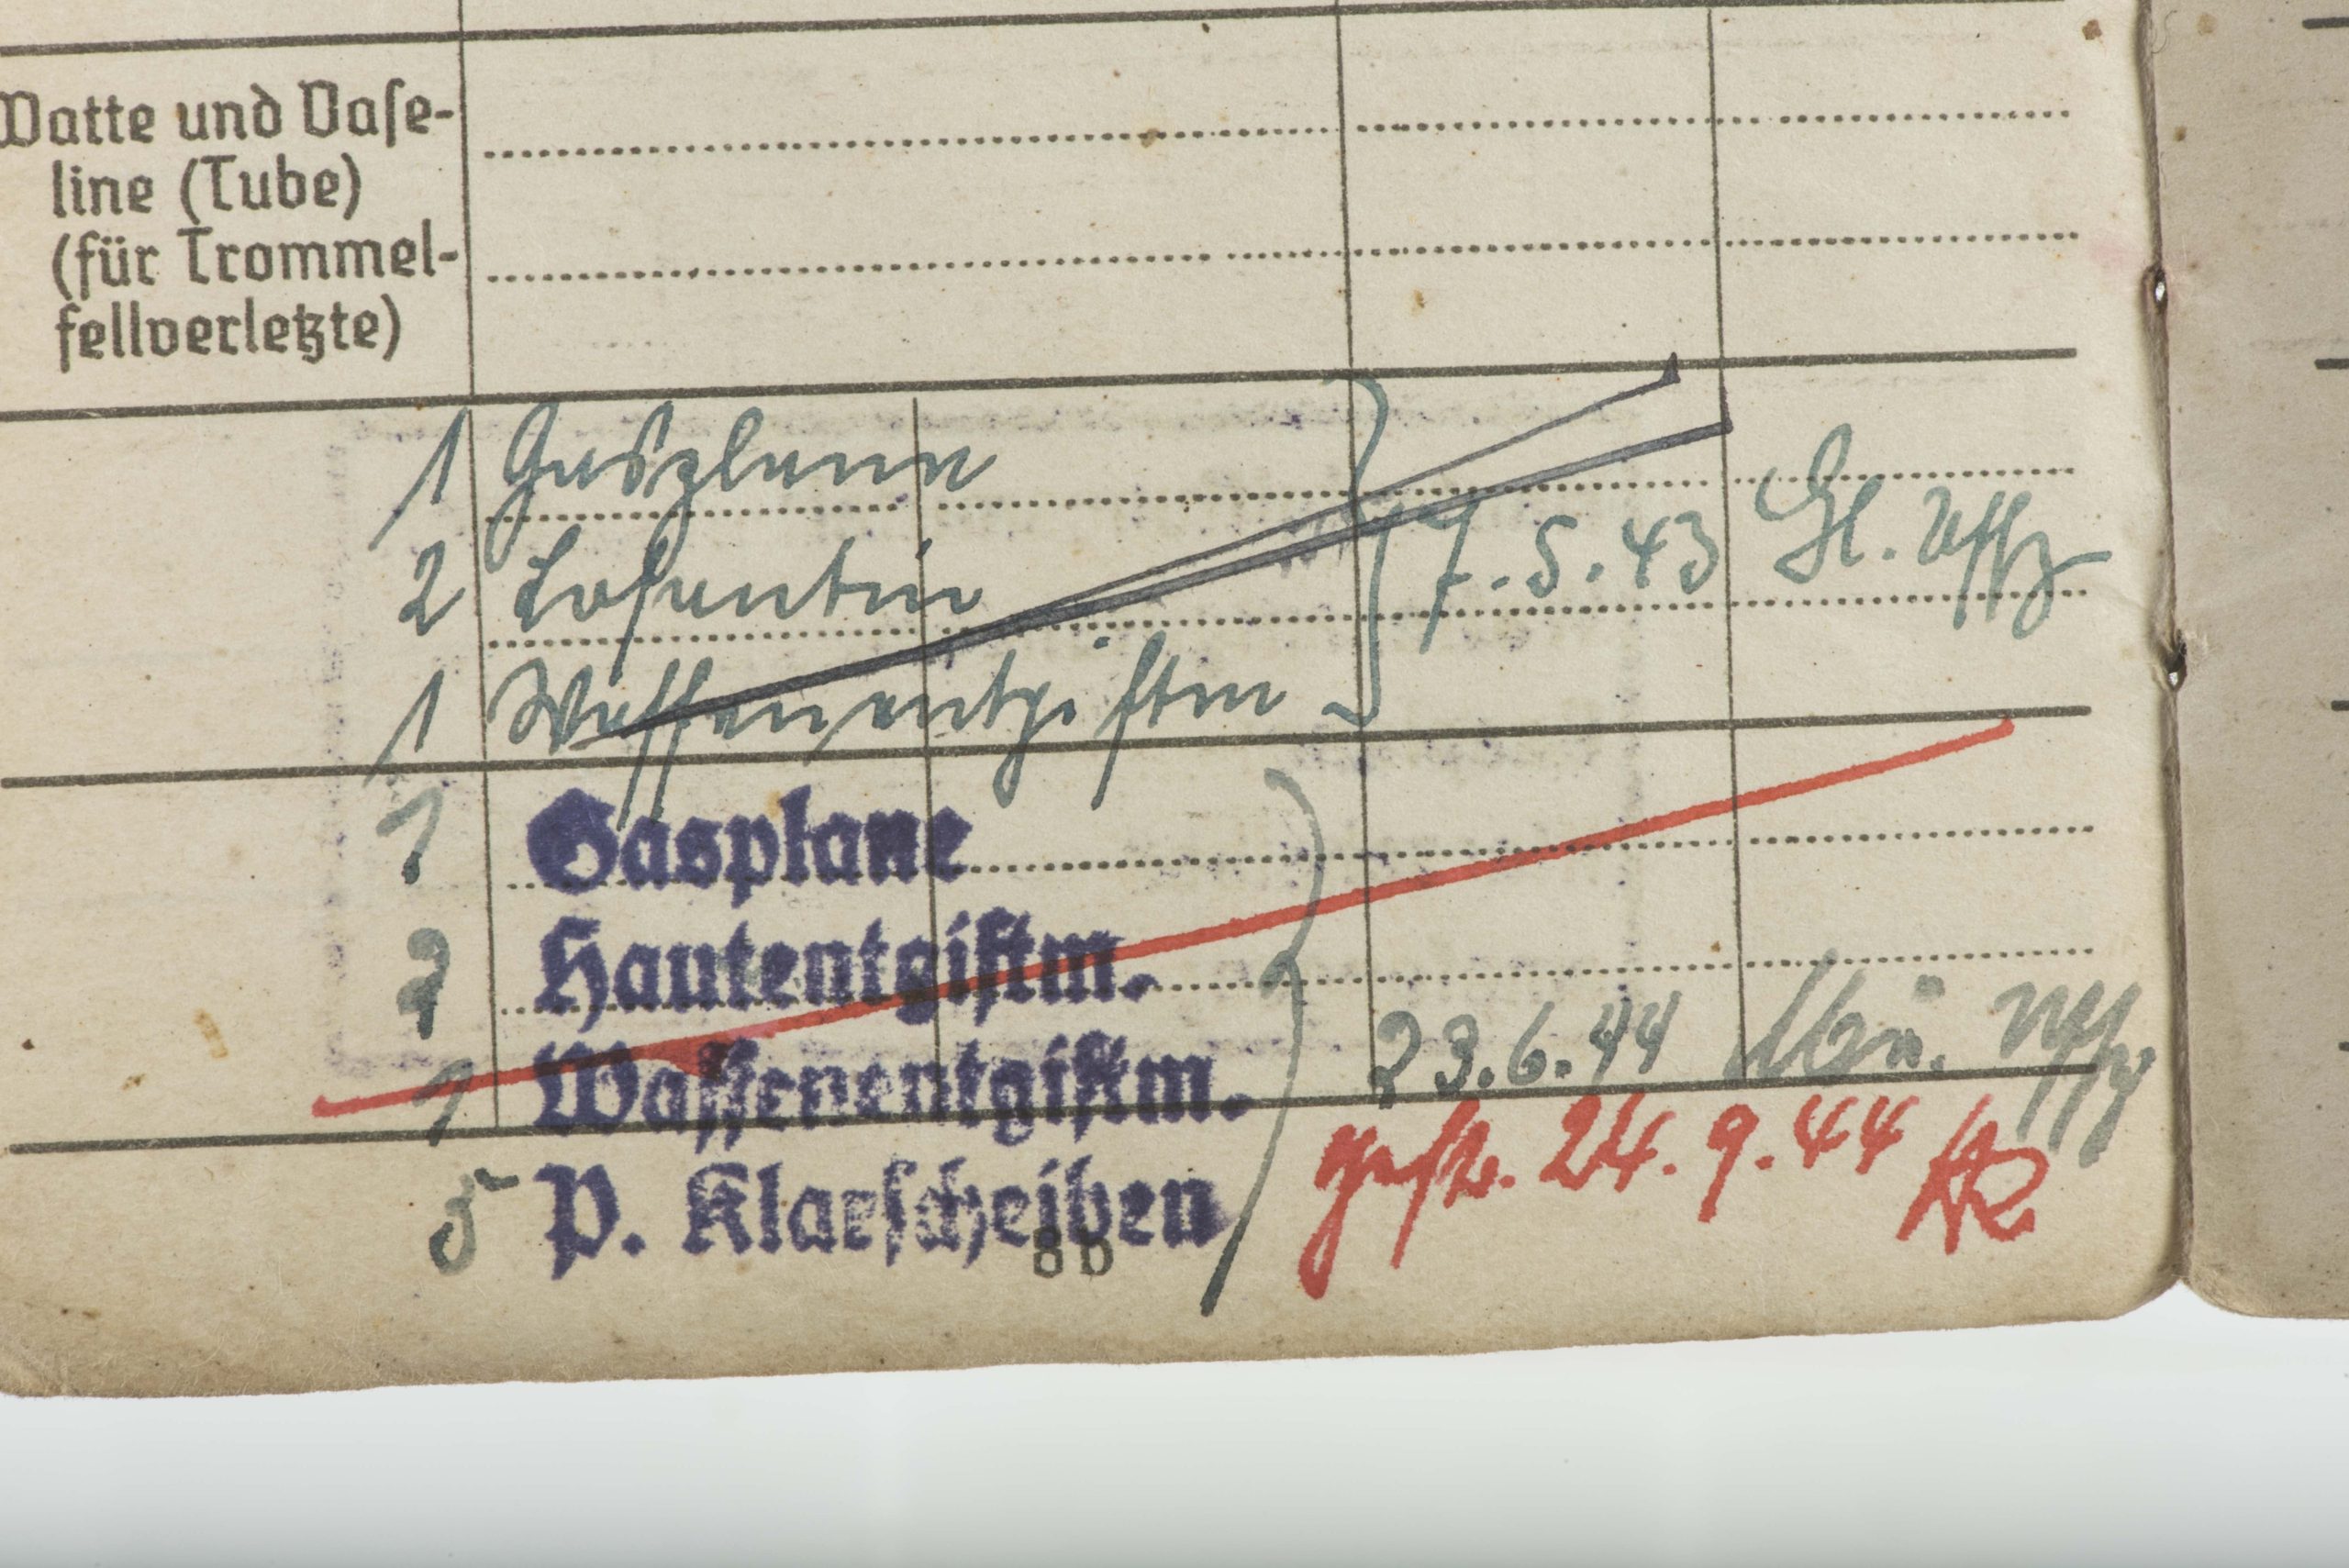 Watte und Vase-
line (Tube)
(für Trommel-
fellverletzte)
1 Gasplane
2 Losantin
1 Waffenentgiftm
7.5.43 Gl. Uffz
1 Gasplane
2 Hautentgiftm.
1 Waffenentgiftm.
23.6.44 Uffz
5 P. Klarscheiben
gestr. 24.9.44
8b